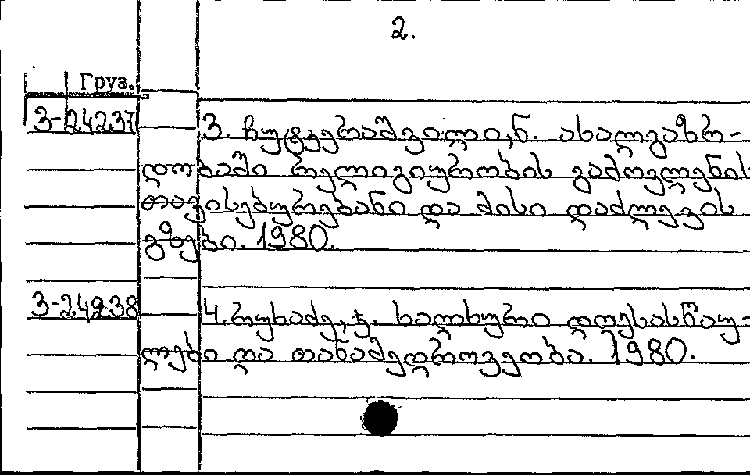 2.
Груз.
3-24237 3. ჩუტყერაშვილი,ნ. ახალგაზრ-
დობაში რელიგიურობის გამოვლენის
თავისებურებანი და მისი დაძლევის
გზები. 1980.
3-24238 4. რუხაძე, ჯ. ხალხური დღესასწაუ-
ლები და თანამედროვეობა. 1980.